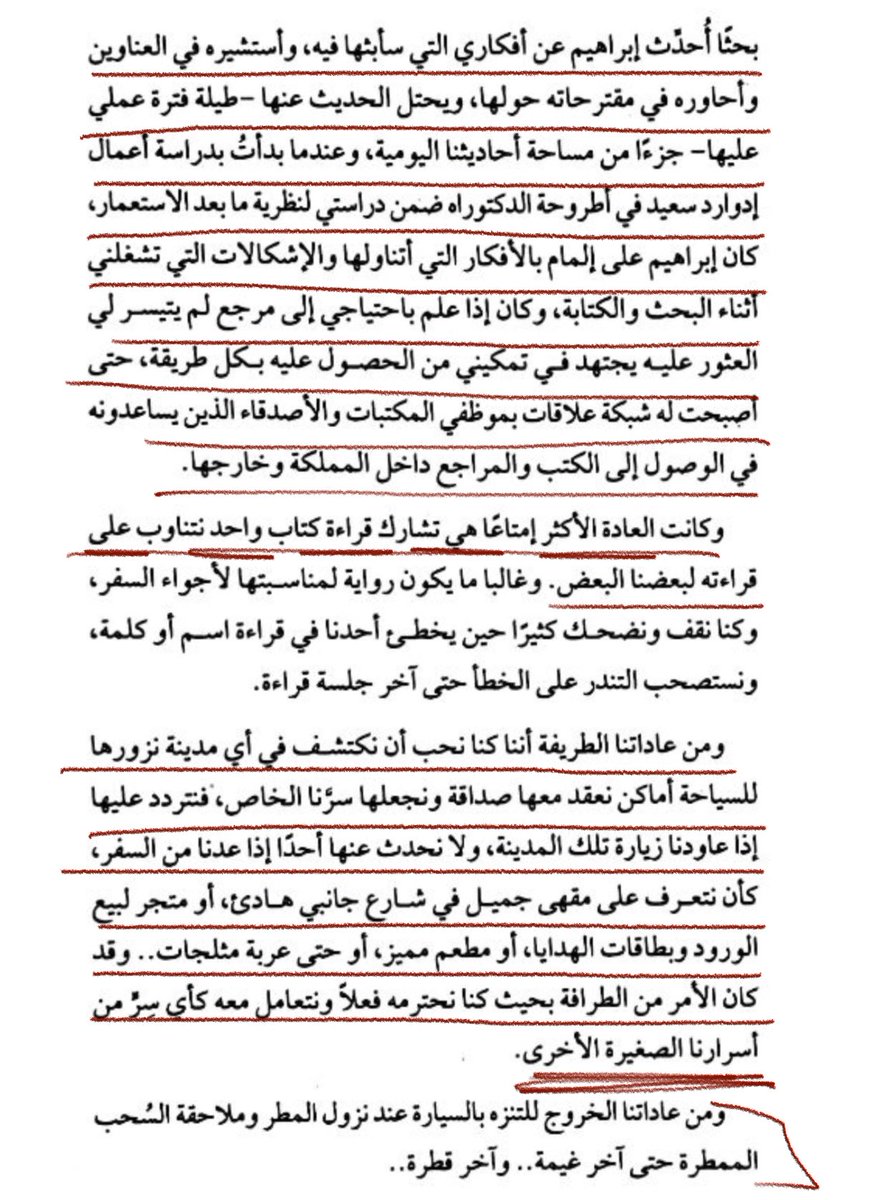 بحثًا أُحدّث إبراهيم عن أفكاري التي سأبثها فيه، وأستشيره في العناوين
وأحاوره في مقترحاته حولها، ويحتل الحديث عنها –طيلة فترة عملي
عليها– جزءًا من مساحة أحاديثنا اليومية، وعندما بدأتُ بدراسة أعمال
إدوارد سعيد في أطروحة الدكتوراه ضمن دراستي لنظرية ما بعد الاستعمار،
كان إبراهيم على إلمام بالأفكار التي أتناولها والإشكالات التي تشغلني
أثناء البحث والكتابة، وكان إذا علم باحتياجي إلى مرجع لم يتيسر لي
العثور عليه يجتهد في تمكيني من الحصول عليه بكل طريقة، حتى
أصبحت له شبكة علاقات بموظفي المكتبات والأصدقاء الذين يساعدونه
في الوصول إلى الكتب والمراجع داخل المملكة وخارجها.
وكانت العادة الأكثر إمتاعًا هي تشارك قراءة كتاب واحد نتناوب على
قراءته لبعضنا البعض. وغالبا ما يكون رواية لمناسبتها لأجواء السفر،
وكنا نقف ونضحك كثيرًا حين يخطئ أحدنا في قراءة اسم أو كلمة،
ونستصحب التندر على الخطأ حتى آخر جلسة قراءة.
ومن عاداتنا الطريفة أننا كنا نحب أن نكتشف في أي مدينة نزورها
للسياحة أماكن نعقد معها صداقة ونجعلها سرَّنا الخاص، فنتردد عليها
إذا عاودنا زيارة تلك المدينة، ولا نحدث عنها أحدًا إذا عدنا من السفر،
كأن نتعرف على مقهى جميل في شارع جانبي هادئ، أو متجر لبيع
الورود وبطاقات الهدايا، أو مطعم مميز، أو حتى عربة مثلجات.. وقد
كان الأمر من الطرافة بحيث كنا نحترمه فعلاً ونتعامل معه كأي سِرٍّ من
أسرارنا الصغيرة الأخرى.
ومن عاداتنا الخروج للتنزه بالسيارة عند نزول المطر وملاحقة السُحب
الممطرة حتى آخر غيمة.. وآخر قطرة..